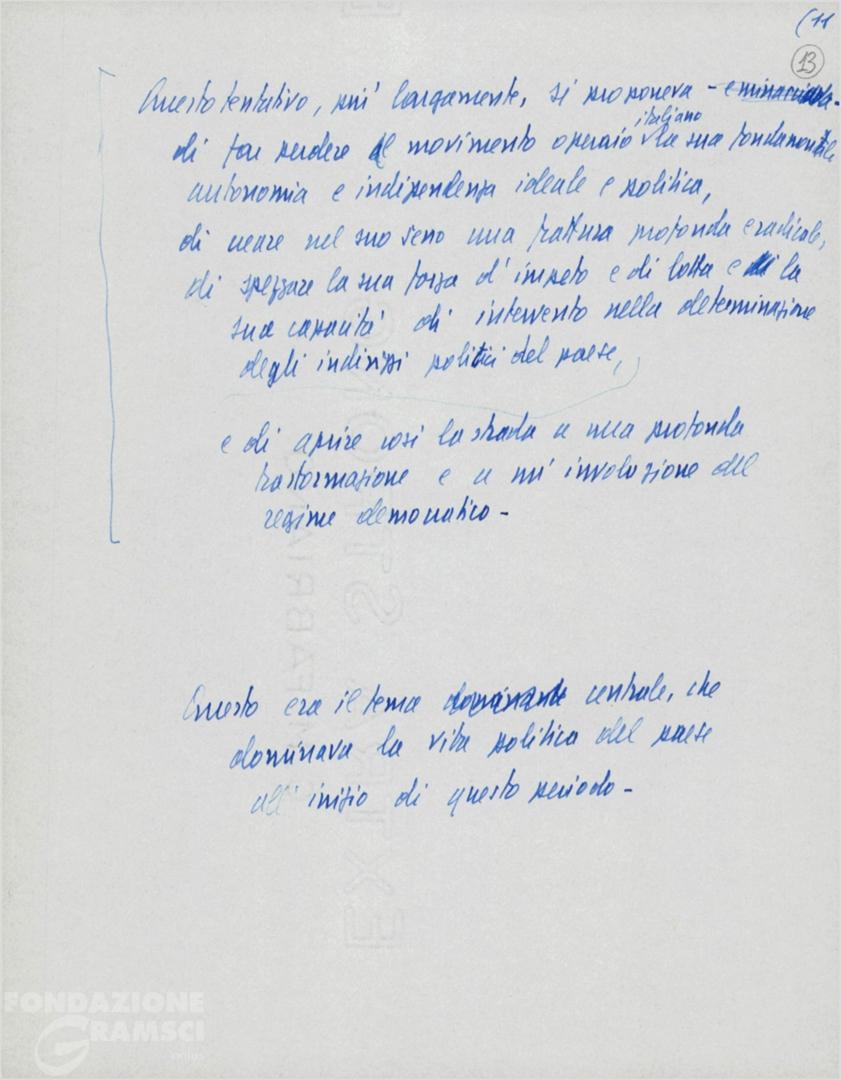 (11
13
Questo tentativo, più largamente, si proponeva - e minacciava -
di far perdere al movimento operaio italiano la sua fondamentale
autonomia e indipendenza ideale e politica,
di creare nel suo seno una frattura profonda e radicale,
di spezzare la sua forza d'impeto e di lotta e di la
sua capacità di intervento nella determinazione
degli indirizzi politici del paese,
e di aprire così la strada a una profonda
trasformazione e a un'involuzione del
regime democratico -
Questo era il tema dominante centrale, che
dominava la vita politica del paese
all'inizio di questo periodo -
EXTRA STRONG
FABRIANO
FONDAZIONE
GRAMSCI
onlus